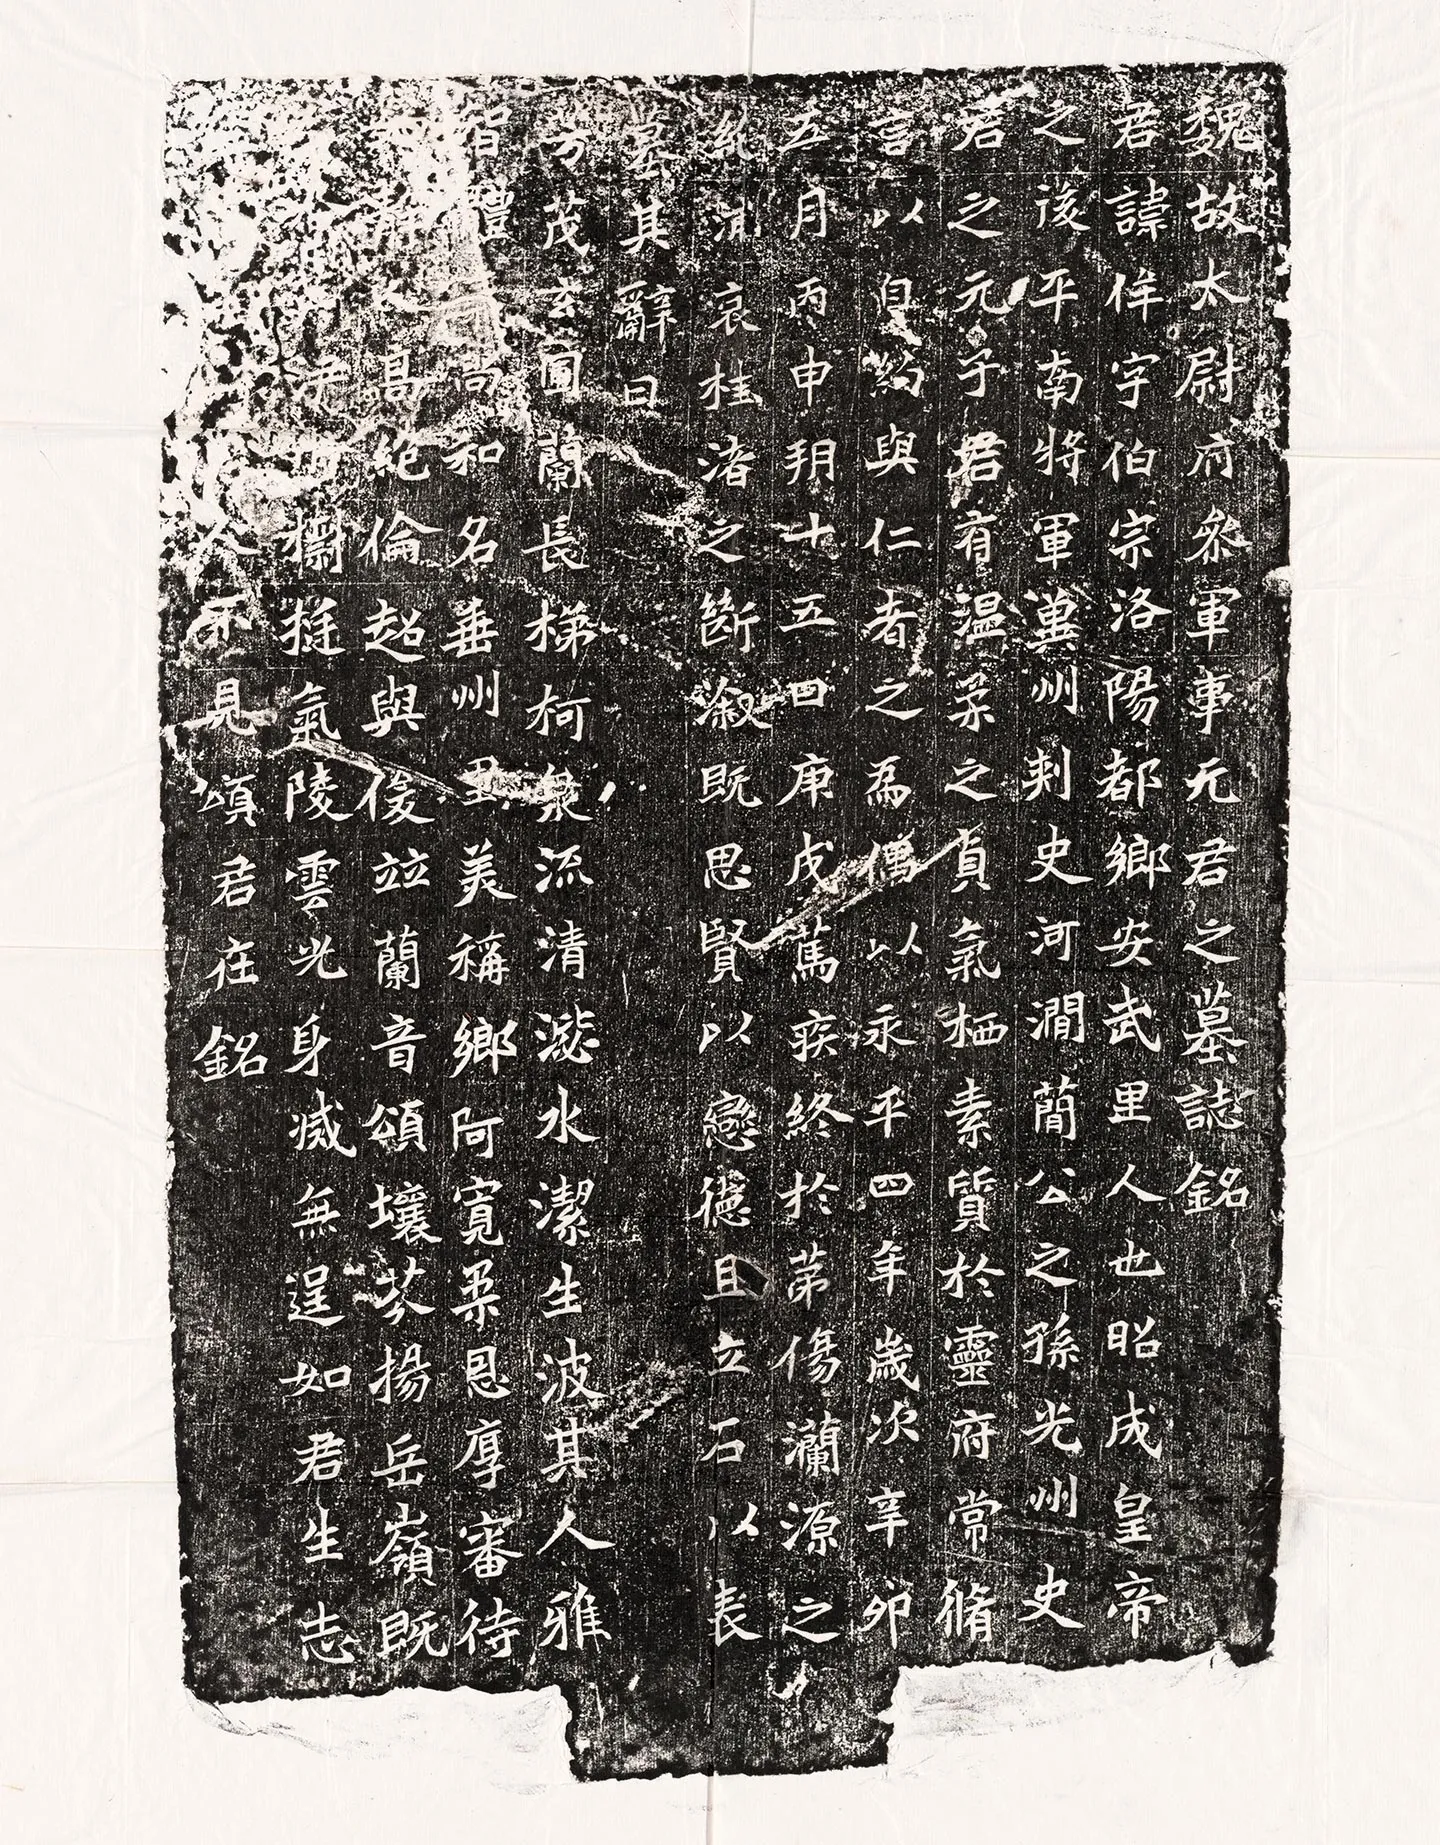 魏故太尉府参軍事元君之墓誌銘
君諱侔字伯宗洛陽都鄉安武里人也昭成皇帝
之後平南將軍冀州刾史河澗簡公之孫光州史
君之元子君有温柔之貞氣栖素質於靈府常脩
言以自約與仁者之爲儔以永平四年歲次辛卯
五月丙申朔十五日庚戌篤疾終於苐傷瀾源之
汎流哀桂渚之斷溆既思賢以戀德且立石以表
墓其辭曰
芳茂玄圃蘭長梯柯泉流清澰水潔生波其人雅
智體尚和名垂州里美稱鄉阿寬柔恩厚審待
高絶倫超與俊竝蘭音頌壤芬揚岳嶺既
挺氣陵雲光身滅無逞如君生志
人不見嗔君在銘